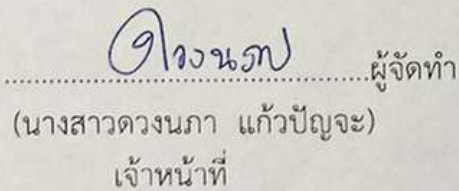 ดวงนภา ผู้จัดทำ
(นางสาวดวงนภา แก้วปัญจะ)
เจ้าหน้าที่